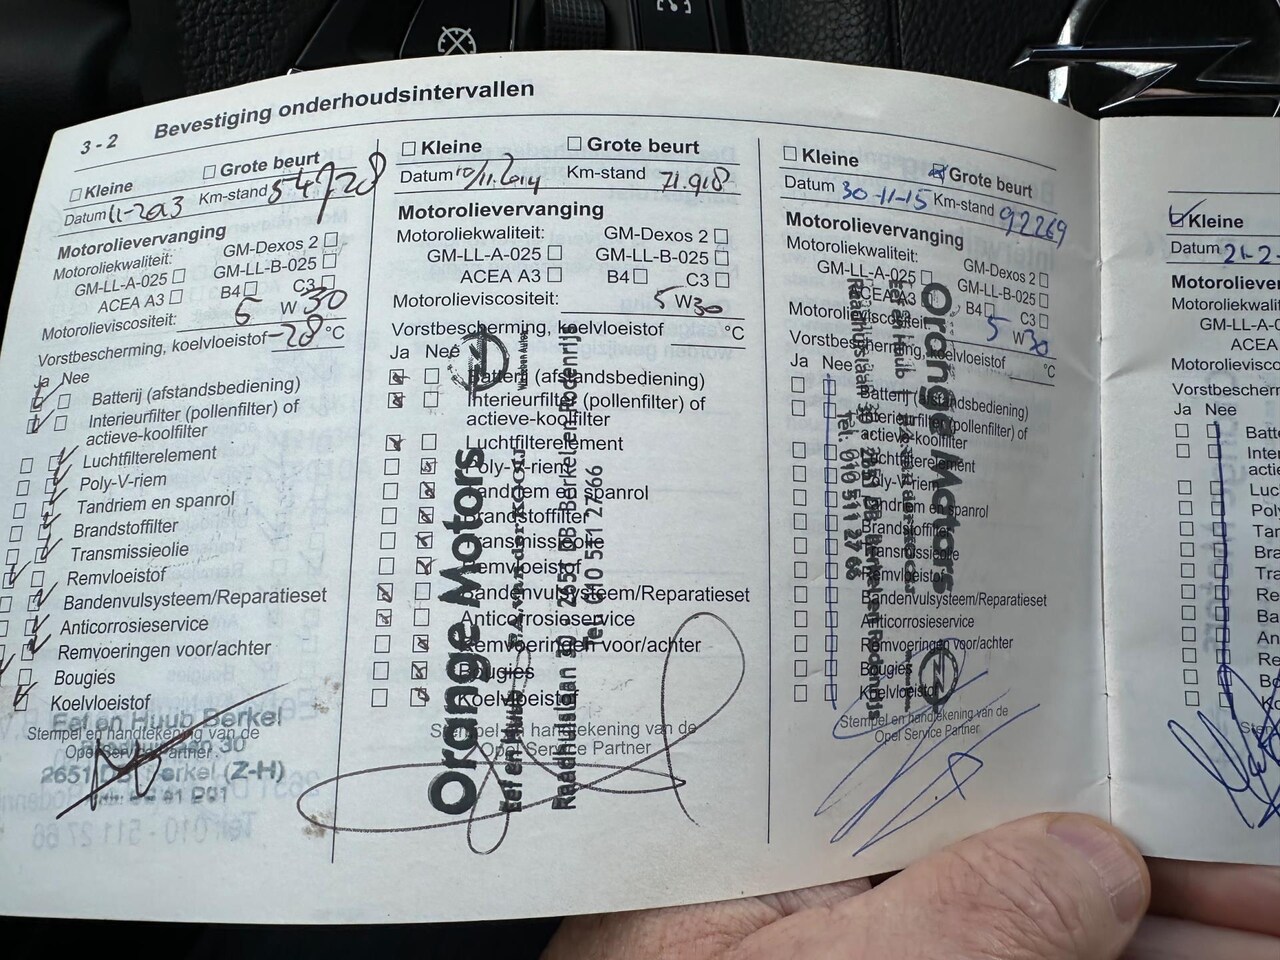 3 - 2 Bevestiging onderhoudsintervallen
☐ Kleine ☐ Grote beurt
Datum 11-2013 Km-stand 54728
Motorolievervanging
Motoroliekwaliteit: GM-Dexos 2 ☐
GM-LL-A-025 ☐ GM-LL-B-025 ☐
ACEA A3 ☐ B4 ☐ C3 ☐
Motorolieviscositeit: 5 W 30
Vorstbescherming, koelvloeistof -28 °C
Ja Nee
Batterij (afstandsbediening)
Interieurfilter (pollenfilter) of
actieve-koolfilter
Luchtfilterelement
Poly-V-riem
Tandriem en spanrol
Brandstoffilter
Transmissieolie
Remvloeistof
Bandenvulsysteem/Reparatieset
Anticorrosieservice
Remvoeringen voor/achter
Bougies
Koelvloeistof
Eef en Huub Berkel
Stempel en handtekening van de
Opel Service Partner
30
2651 Berkel (Z-H)
☐ Kleine ☐ Grote beurt
Datum 10/11.2014 Km-stand 71.918
Motorolievervanging
Motoroliekwaliteit: GM-Dexos 2 ☐
GM-LL-A-025 ☐ GM-LL-B-025 ☐
ACEA A3 ☐ B4 ☐ C3 ☐
Motorolieviscositeit: 5 W 30
Vorstbescherming, koelvloeistof °C
Ja Nee
Batterij (afstandsbediening)
Interieurfilter (pollenfilter) of
actieve-koolfilter
Luchtfilterelement
Poly-V-riem
Tandriem en spanrol
Brandstoffilter
Transmissieolie
Remvloeistof
Bandenvulsysteem/Reparatieset
Anticorrosieservice
Remvoeringen voor/achter
Bougies
Koelvloeistof
Stempel en handtekening van de
Opel Service Partner
Orange Motors
Eef en Huub
Raadhuislaan 30 - 2651 DB Berkel en Rodenrijs
Tel. 010 511 27 66
☐ Kleine ☒ Grote beurt
Datum 30-11-15 Km-stand 92269
Motorolievervanging
Motoroliekwaliteit: GM-Dexos 2 ☐
GM-LL-A-025 ☐ GM-LL-B-025 ☐
ACEA A3 B4 ☐ C3 ☐
Motorolieviscositeit: 5 W 30
Vorstbescherming, koelvloeistof °C
Ja Nee
Batterij (afstandsbediening)
Interieurfilter (pollenfilter) of
actieve-koolfilter
Luchtfilterelement
Poly-V-riem
Tandriem en spanrol
Brandstoffilter
Transmissieolie
Remvloeistof
Bandenvulsysteem/Reparatieset
Anticorrosieservice
Remvoeringen voor/achter
Bougies
Koelvloeistof
Stempel en handtekening van de
Opel Service Partner
Orange Motors
Eef en Huub
Raadhuislaan 30 2651 DB Berkel en Rodenrijs
Tel. 010 511 27 66
☑ Kleine
Datum 21-2-
Motorolierver
Motoroliekwalit
GM-LL-A-0
ACEA
Motorolievisco
Vorstbescherm
Ja Nee
Batte
Inter
actie
Luc
Poly
Tan
Bra
Tra
Re
Ba
An
Re
Bo
Ko
Stem